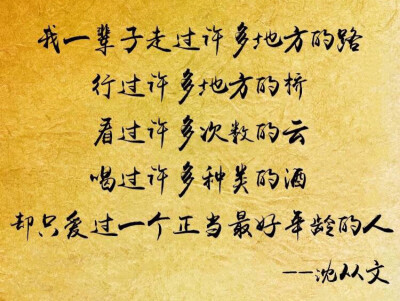 我一辈子走过许多地方的路
行过许多地方的桥
看过许多次数的云
喝过许多种类的酒
却只爱过一个正当最好年龄的人
--沈从文